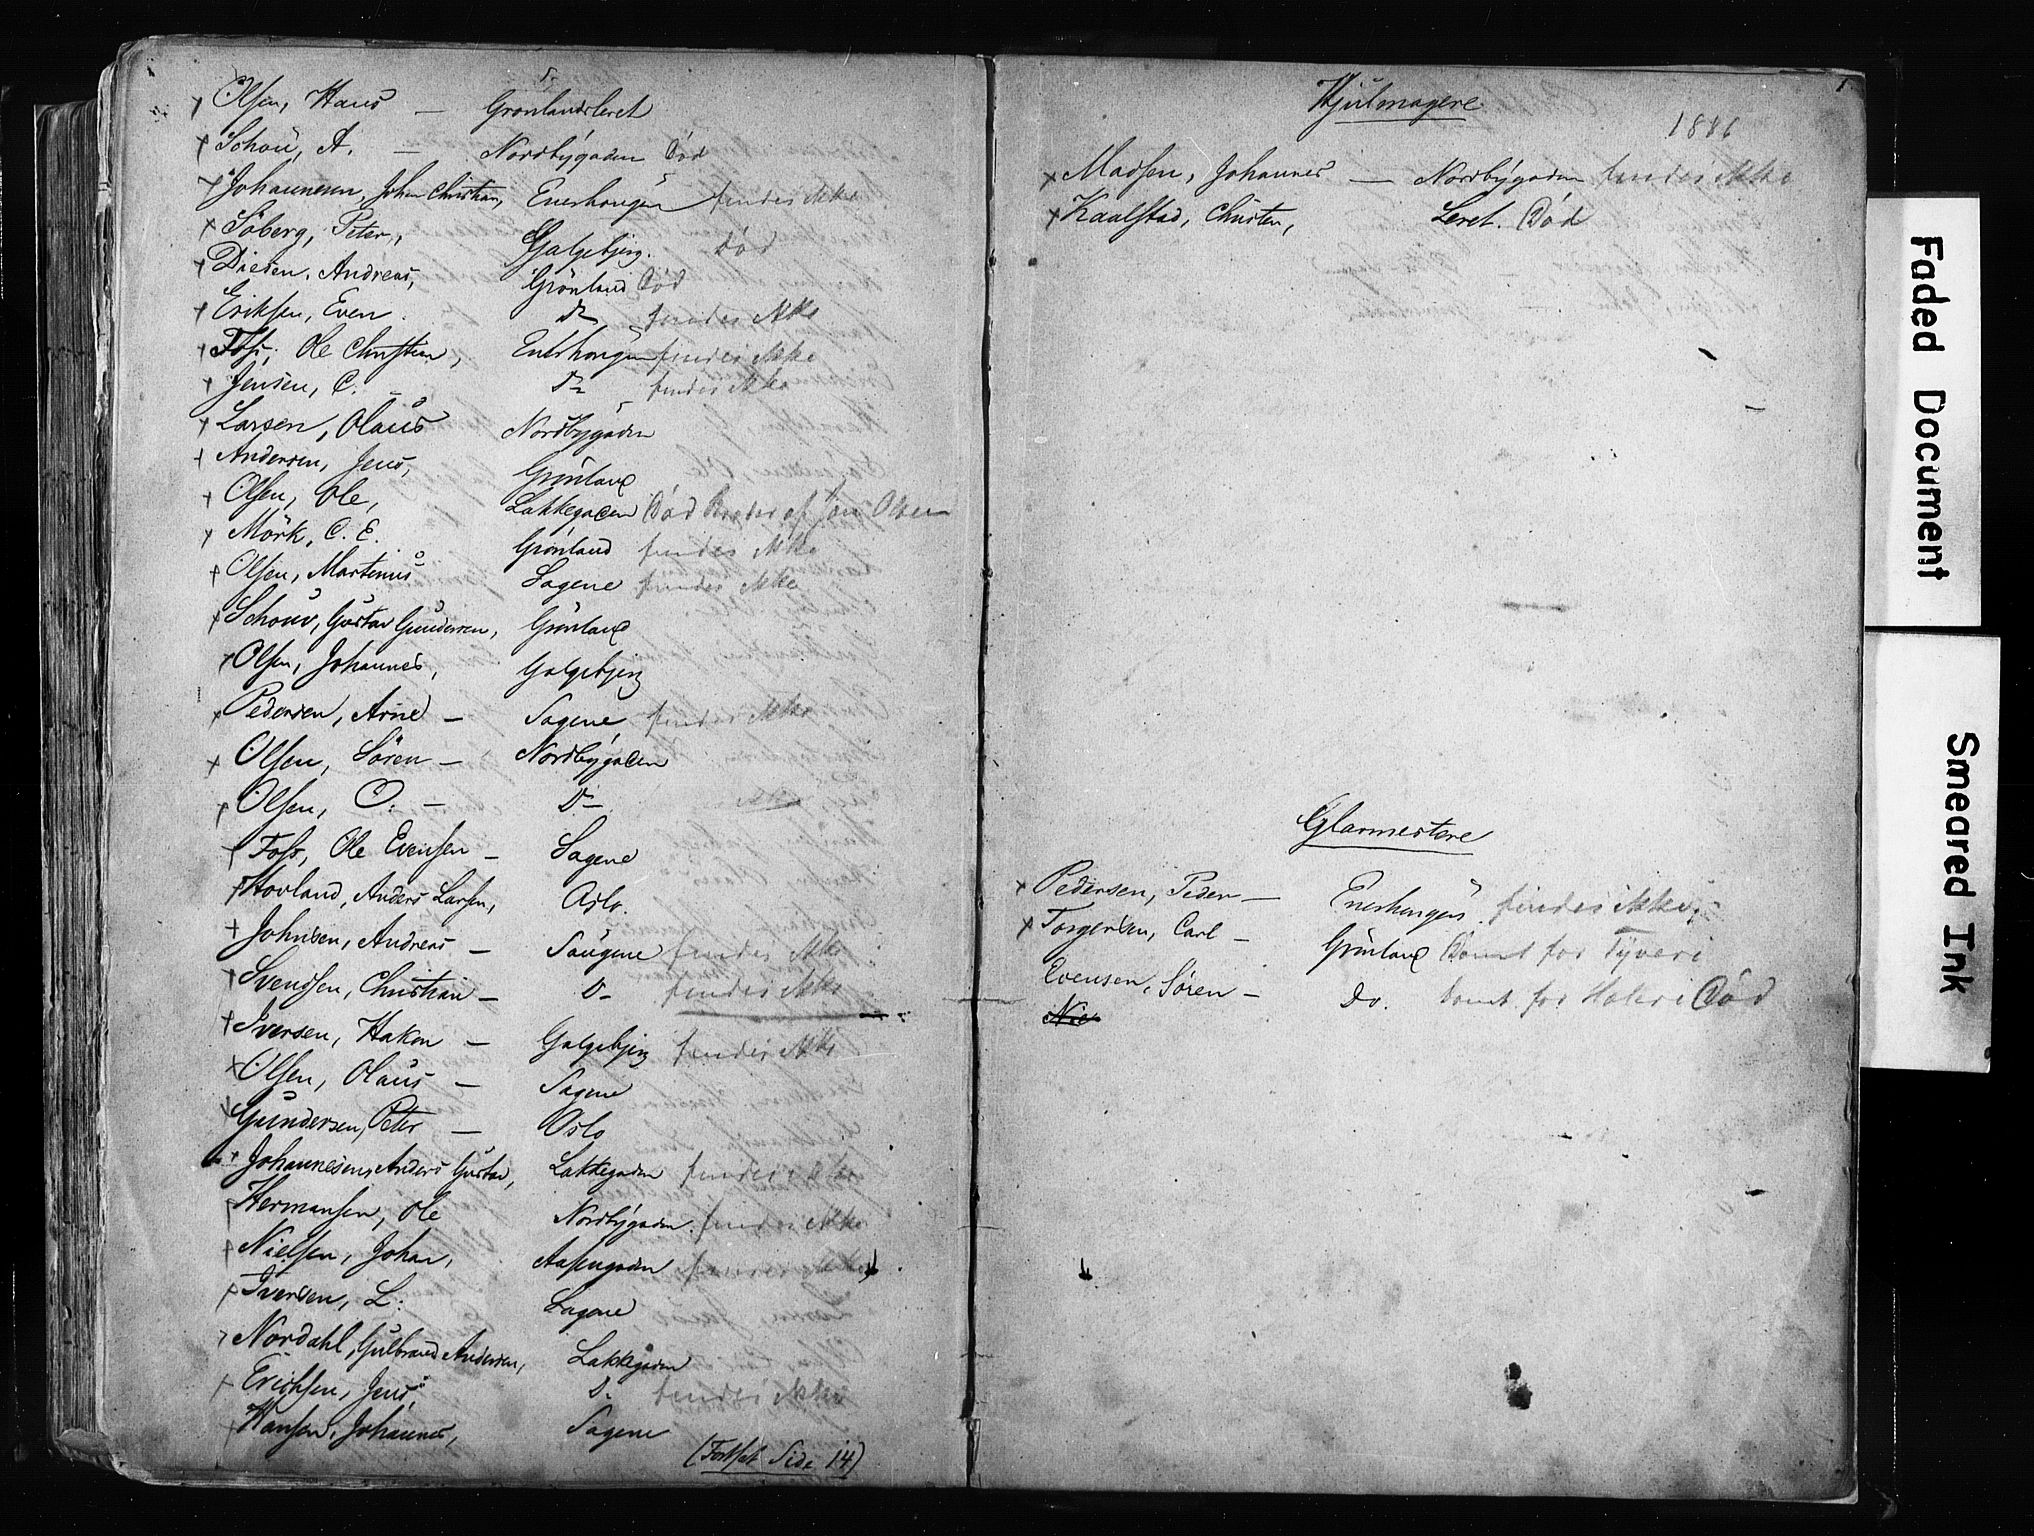 Olsen, Hans — Grönlandsleret
Schou, A. — Nordbygaden Död
Johannesen, John Christian, Enerhougen findes ikke
Söberg, Peter, Galgebjerg. Död
Diesen, Andreas, Grönland Död
Eriksen, Even. do findes ikke
Foss, Ole Christian, Enerhougen findes ikke
Jensen, C. — do findes ikke
Larsen, Olaus Nordbygaden
Andersen, Jens, Grönland
Olsen, Ole, Lakkegaden Död Broder af Jon Olsen
Mörk, C. E. Grönland findes ikke
Olsen, Martinus Sagene findes ikke
Schouv, Gustav Gundersen, Grönland
Olsen, Johannes, Galgebjerg
Pedersen, Arne — Sagene findes ikke
Olsen, Sören — Nordbygaden
Olsen, O. — Do
Foss, Ole Evensen — Sagene
Hovland, Anders Larsen, Oslo.
Johnsen, Andreas — Saugene findes ikke
Svendsen, Christian — Do findes ikke
Iversen, Haken — Galgebjerg findes ikke
Olsen, Olaus — Sagene
Gundersen, Peter — Oslo
Johannesen, Anders Gustav, Lakkegaden findes ikke
Hermansen, Ole Nordbygaden. findes ikke
Nielsen, Johan, Aasengaden findes ikke
Iversen, L. Sagene
Nordahl, Gulbrand Andersen, Lakkegaden
Erichsen, Jens D. findes ikke
Hansen, Johannes, Sagene
(Fortsat Side 14)
1
Hjulmagere
1886
Madsen, Johannes — Nordbygaden findes ikke
Kaalstad, Christen, Leret. Död
Glarmestere
Pedersen, Peder — Enerhougen. findes ikke
Torgersen, Carl — Grönland Dömt for Tyveri
Evensen, Sören — Do. Dömt for Hæleri Död
Nie
Faded Document
Smeared Ink